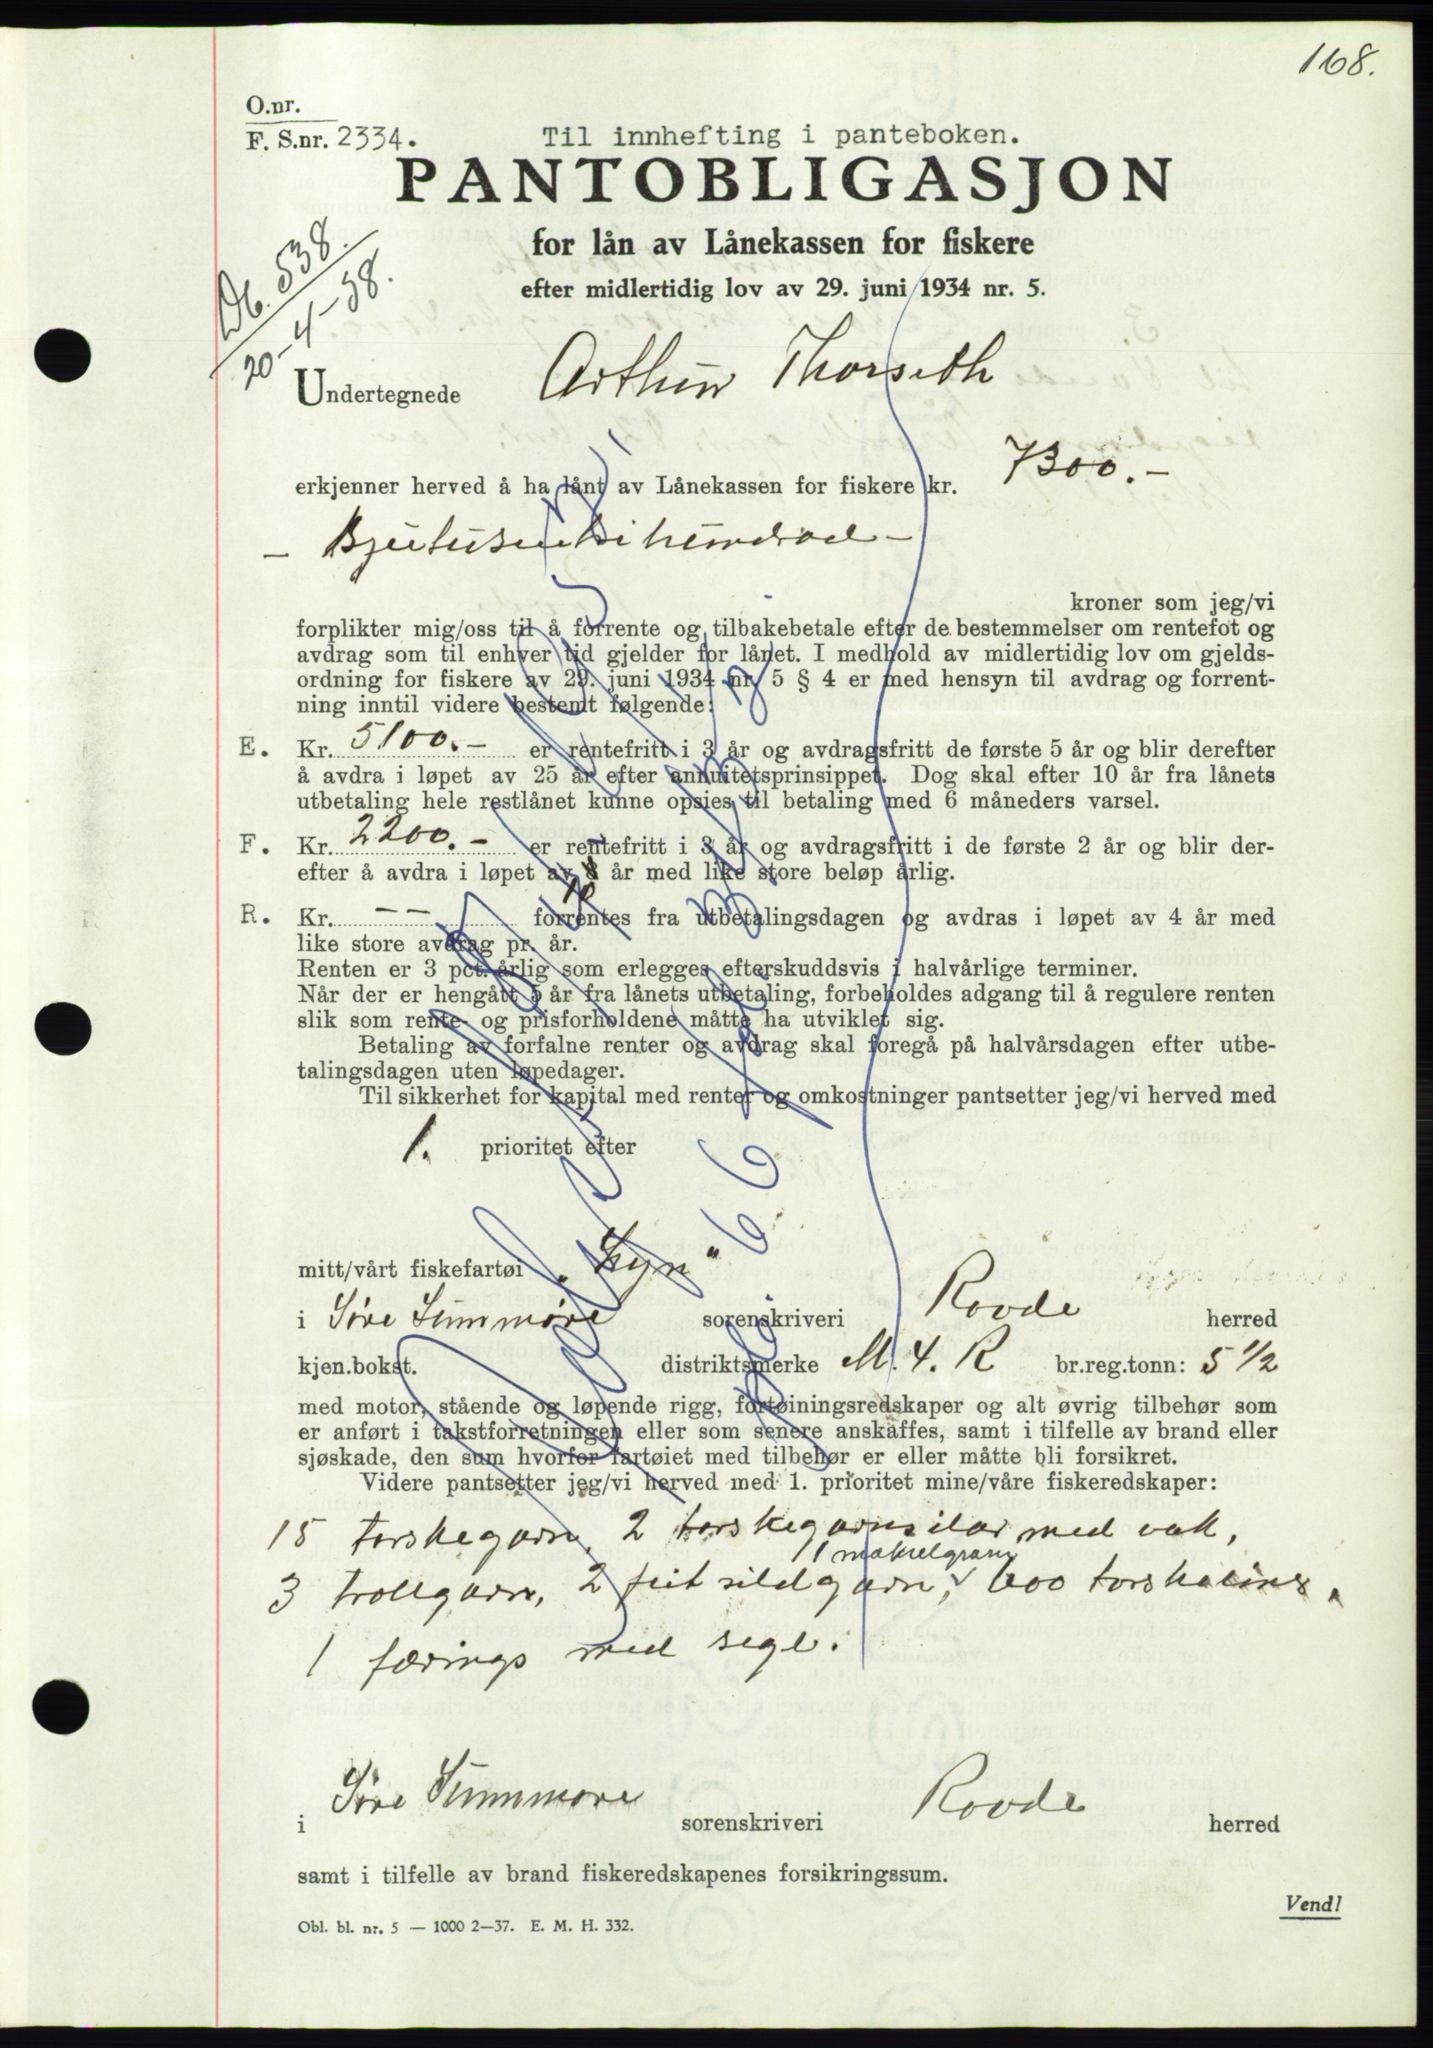 168.
O.nr.
F. S.nr. 2334.
Til innhefting i panteboken.
PANTOBLIGASJON
for lån av Lånekassen for fiskere
efter midlertidig lov av 29. juni 1934 nr. 5.
Db. 538.
20-4-38.
Undertegnede Arthur Thorseth
erkjenner herved å ha lånt av Lånekassen for fiskere kr. 7300.-
kroner som jeg/vi
forplikter mig/oss til å forrente og tilbakebetale efter de bestemmelser om rentefot og
avdrag som til enhver tid gjelder for lånet. I medhold av midlertidig lov om gjelds-
ordning for fiskere av 29. juni 1934 nr. 5 § 4 er med hensyn til avdrag og forrent-
ning inntil videre bestemt følgende:
E. Kr. 5100.- er rentefritt i 3 år og avdragsfritt de første 5 år og blir derefter
å avdra i løpet av 25 år efter annuitetsprinsippet. Dog skal efter 10 år fra lånets
utbetaling hele restlånet kunne opsies til betaling med 6 måneders varsel.
F. Kr. 2200.- er rentefritt i 3 år og avdragsfritt i de første 2 år og blir der-
efter å avdra i løpet av 8 år med like store beløp årlig.
10
R. Kr. -- forrentes fra utbetalingsdagen og avdras i løpet av 4 år med
like store avdrag pr. år.
Renten er 3 pct. årlig som erlegges efterskuddsvis i halvårlige terminer.
Når der er hengått 5 år fra lånets utbetaling, forbeholdes adgang til å regulere renten
slik som rente- og prisforholdene måtte ha utviklet sig.
Betaling av forfalne renter og avdrag skal foregå på halvårsdagen efter utbe-
talingsdagen uten løpedager.
Til sikkerhet for kapital med renter og omkostninger pantsetter jeg/vi herved med
1. prioritet efter
mitt/vårt fiskefartøi "Lyn"
i Søre Sunnmøre sorenskriveri Rovde herred
kjen.bokst. distriktsmerke M. 4. R br.reg.tonn: 5 1/2
med motor, stående og løpende rigg, fortøiningsredskaper og alt øvrig tilbehør som
er anført i takstforretningen eller som senere anskaffes, samt i tilfelle av brand eller
sjøskade, den sum hvorfor fartøiet med tilbehør er eller måtte bli forsikret.
Videre pantsetter jeg/vi herved med 1. prioritet mine/våre fiskeredskaper:
15 torskegarn, 2 torskegarnsilar med vak,
1 makrelgarn
3 trollgarn, 2 feitsildgarn, 600 torskeline,
1 færings med segl.
i Søre Sunnmøre sorenskriveri Rovde herred
samt i tilfelle av brand fiskeredskapenes forsikringssum.
Vend!
Obl. bl. nr. 5 — 1000 2—37. E. M. H. 332.